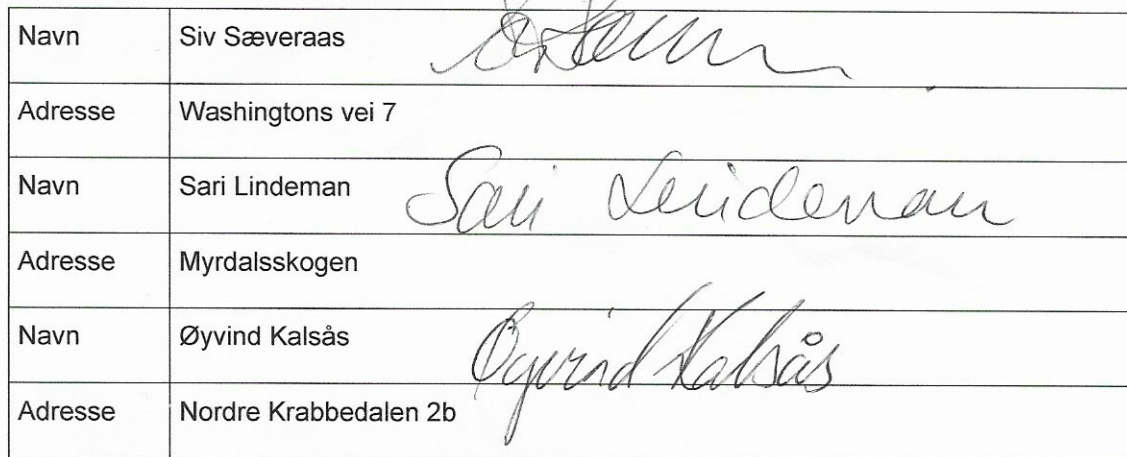 Navn Siv Sæveraas
Adresse Washingtons vei 7
Navn Sari Lindeman Sari Lindeman
Adresse Myrdalsskogen
Navn Øyvind Kalsås Øyvind Kalsås
Adresse Nordre Krabbedalen 2b